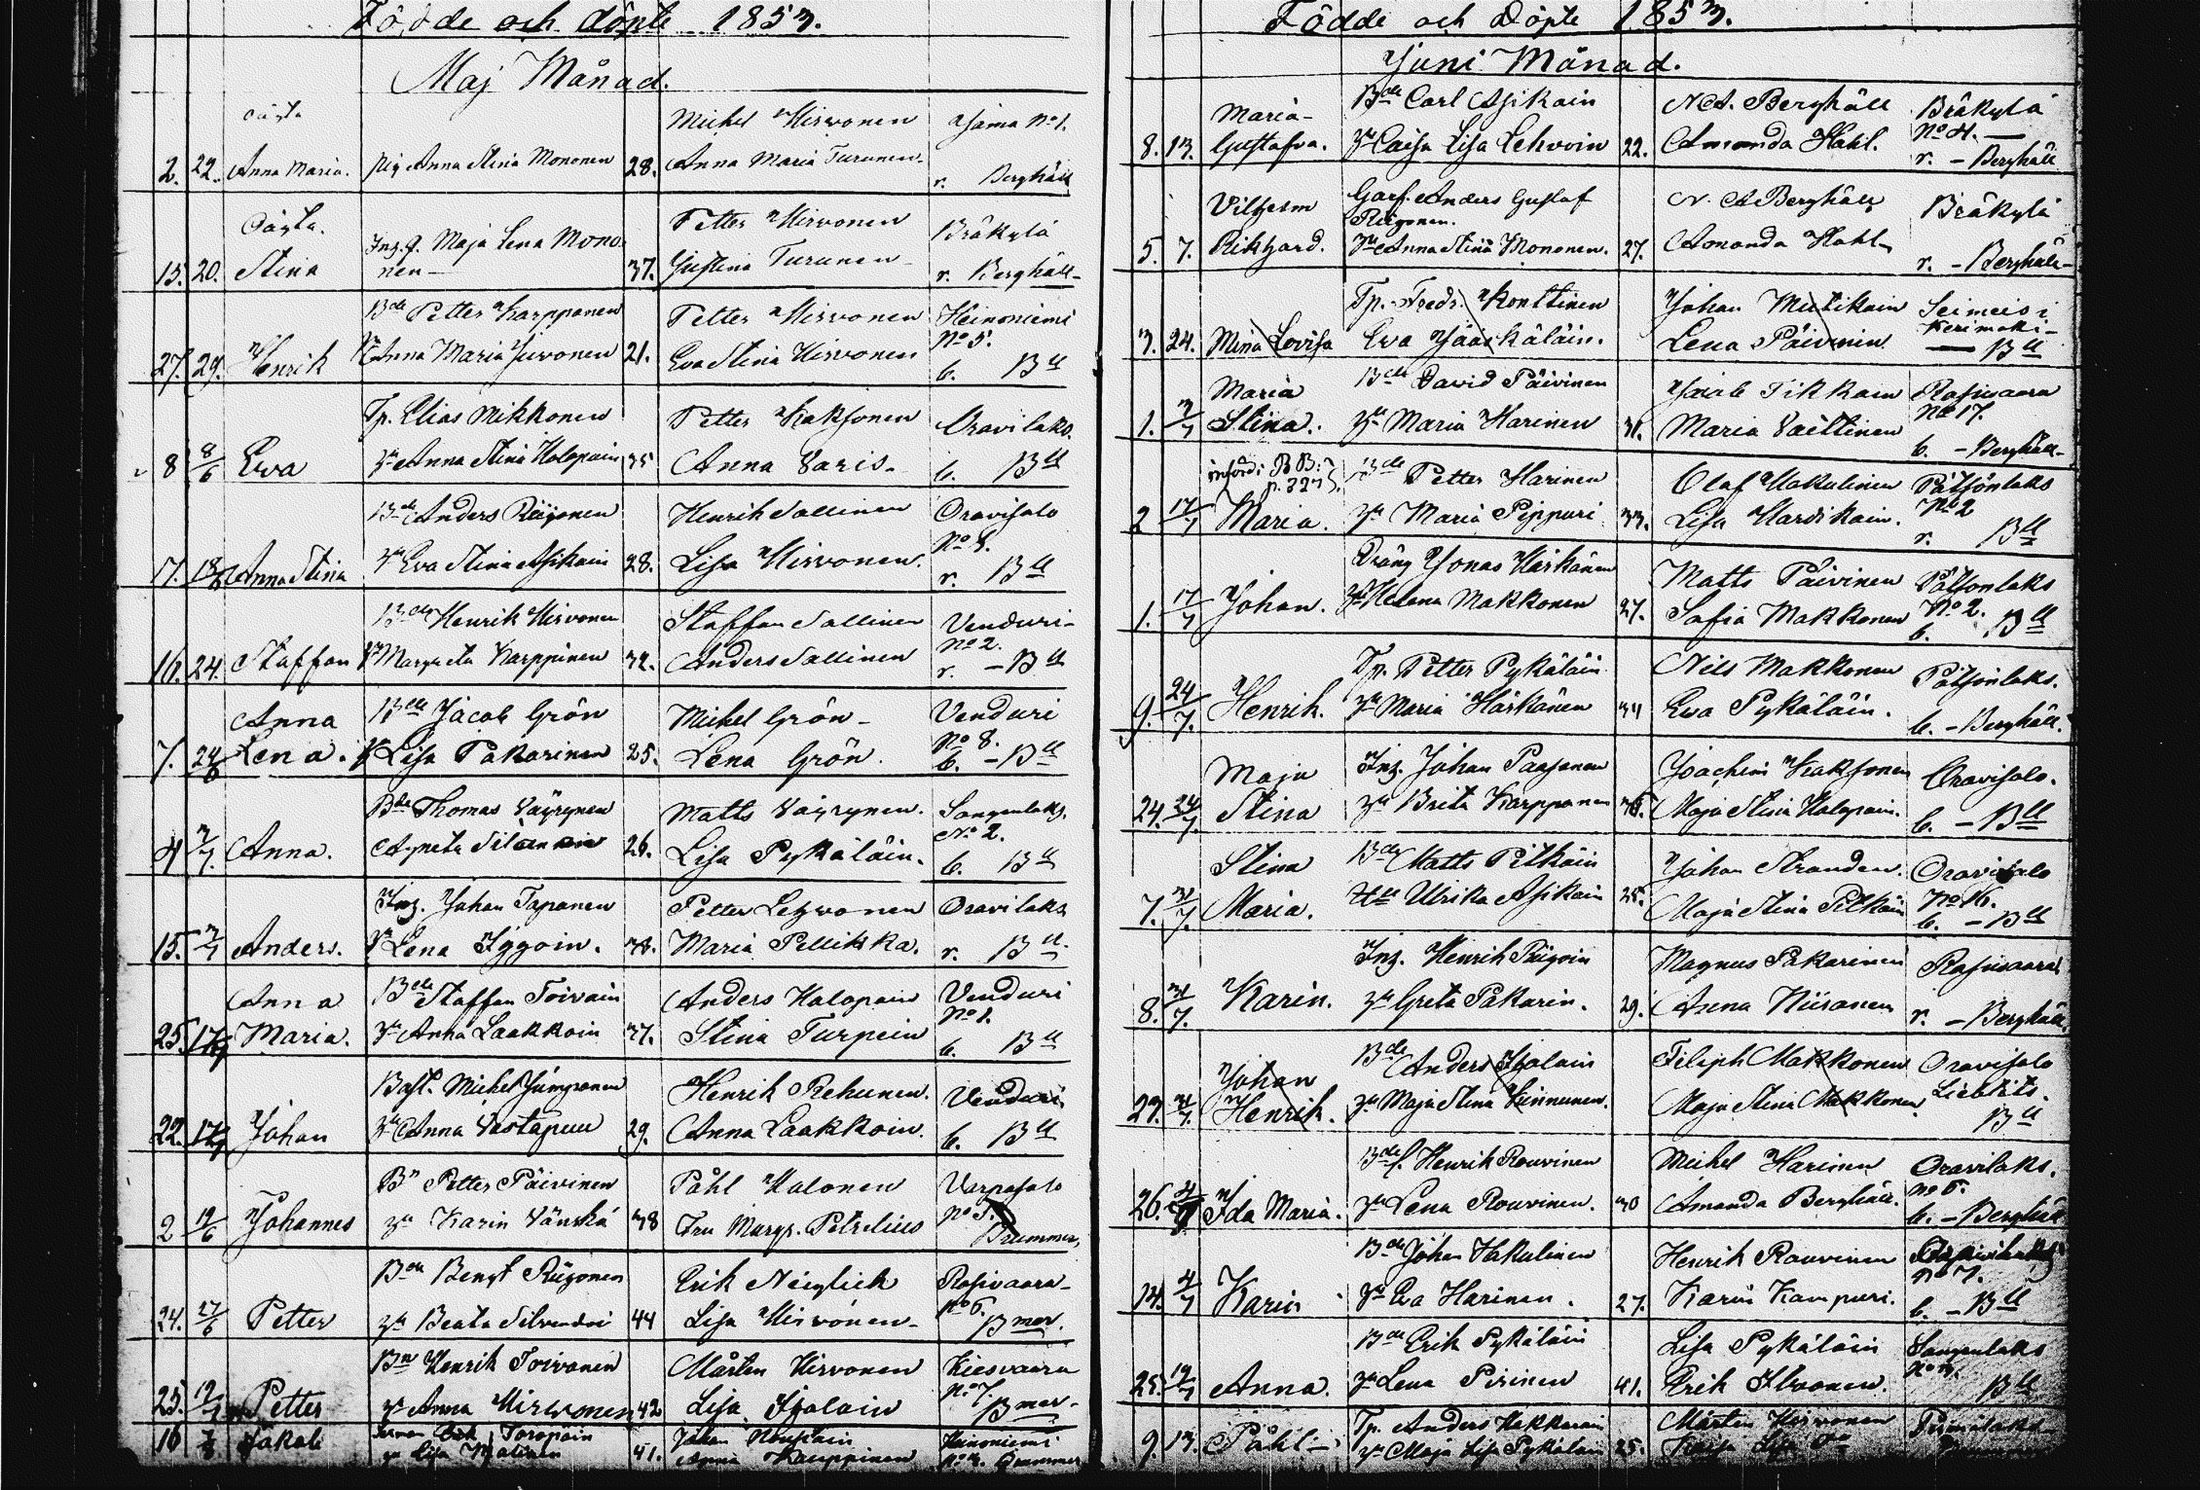 Födde och döpte 1853.
Maj Månad.
oägta
2. 22. Anna Maria. pig Anna Stina Mononen 28. Michel Hirvonen Anna Maria Turunen Jama No 1. r. Berghäll
Oägta.
15. 20. Stina Inh. q. Maja Lena Mononen 37. Petter Hirvonen Justina Turunen Bräkylä r. Berghäll
27. 29. Henrik Bde Petter Karppanen Anna Maria Juvonen 21. Petter Hirvonen Eva Stina Hirvonen Heinoniemi No 5. b. Bll
8 8/6 Eva Tp. Elias Mikkonen Anna Stina Holopain 35 Petter Kaksonen Anna Varis. Oravilaks. b. Bll
7. 18/6 Anna Stina Bde Anders Riigonen Eva Stina Asikain 28. Henrik Sallinen Lisa Hirvonen. Oravisalo r. Bll
16. 24. Staffan Bde Henrik Hirvonen Margreta Karppinen 32. Staffan Sallinen Anders Sallinen Venduri No 2. r. - Bll
7. 24/6 Anna Lena. Bde Jacob Grön Lisa Pakarinen 25. Michel Grön Lena Grön. Venduri No 8. b. - Bll
4 3/7. Anna. Bde Thomas Väyrynen Agneta 26. Matts Väyrynen. Lisa Pykäläin. Sangenlaks. No 2. b. Bll
15. 3/7 Anders. Inh. Johan Tapanen Lena Iggoin. 38. Petter Lehvonen Maria Pellikka. Oravilaks r. Bll
25. 17/7 Anna Maria. Bde Staffan Toivain Anna Laakkoin 37. Anders Holopain Stina Turpein Venduri No 1. b. Bll
22. 17/7 Johan Michel Jumpponen Anna Vastapuu 29. Henrik Rehunen. Anna Laakkoin. Venduri b. Bll
2 19/6 Johannes Bn Petter Päivinen Karin Vänskä 38 Påhl Halonen Fru Margr. Petrelius Varpasalo Brummer
24. 27/6 Petter Bde Bengt Riigonen Beata Silvendoi 44 Erik Neiglick Lisa Hirvonen Rasivaara No 6. Bmer.
25. Petter Bn Henrik Toivanen Anna Hirvonen 42 Mårten Hirvonen Lisa Ijalain Kiesvaara No 7. Bmer
16 Jakob Toropain Lisa 41. Kauppinen Heinoniemi Brummer
Födde och Döpte 1853.
Juni Månad.
8. 13. Maria Gustafva. Bde Carl Asikain Caisa Lisa Lehvoin 22. N A. Berghäll Amanda Hahl. Bräkylä No 4. r. - Berghäll
5. 7. Vilhelm Rikhard. Garf. Anders Gustaf Riigonen. Anna Stina Mononen. 27. N. A Berghäll Amanda Hahl Bräkylä r. - Berghäll
3. 24. Mina Lovisa Tp. Fredr. Konttinen Eva Jääskäläin. Johan Mutikain Lena Päivinin Kerimäki Bll
1. 3/7 Maria Stina. Bde David Päivinen Maria Harinen 31. Jacob Tikkain MariaVäittinen Rasivaara No 17. b. - Berghäll
införd: B B: p. 327.
2 17/7 Maria. Bde Petter Harinen Maria Pippuri 33. Olof Hakulinen Lisa Pätsönlaks No 2 r. Bll
1. 17/7 Johan. Dräng Jonas Härkänen Helena Makkonen 27. Matts Päivinen Sofia Makkonen Pätsönlaks No 2. b. Bll
9. 24/7. Henrik. Tp. Petter Pykäläin Maria Härkänen 34 Nils Makkonen Eva Pykäläin. Pätsönlaks. b. - Berghäll.
24. 24/7. Maja Stina Inh. Johan Paajanen Brita Karppanen 36. Joachim Kaksonen Maja Stina Holopain. Oravisalo. b. - Bll
7. 31/7. Stina Maria. Bde Matts Pitkäin Ulrika Asikain 25. Johan Stranden. Maja Stina Pitkäin Oravisalo No 16. b. - Bll
8. 31/7. Karin. Inh. Henrik Riigoin Greta Pakarin. 29. Magnus Pakarinen Anna Kiisanen Rasivaara r. - Berghäll
23. 31/7. Johan Henrik. Bde Anders Ijalain Maja Stina Kinnunen. Filiph Makkonen Maja Stina Makkonen Oravisalo Bll
26. Ida Maria. Henrik Rouvinen Lena Rouvinen. 30 Michel Harinen Amanda Berghäll. Oravilaks. No 6. b. - Berghäll
14. Karin Bde Johan Hakulinen Eva Harinen. 27. Henrik Rouvinen Karin Kampuri. No 7. b. - Bll
25. Anna. Bde Erik Pykäläin Lena Pirinen 41. Lisa Pykäläin Erik Ikonen. Sangenlaks Bll
9. 13. Påhl Tp. Anders Hakkarain Maja Lisa Pykäläin 25. Mårten Hirvonen